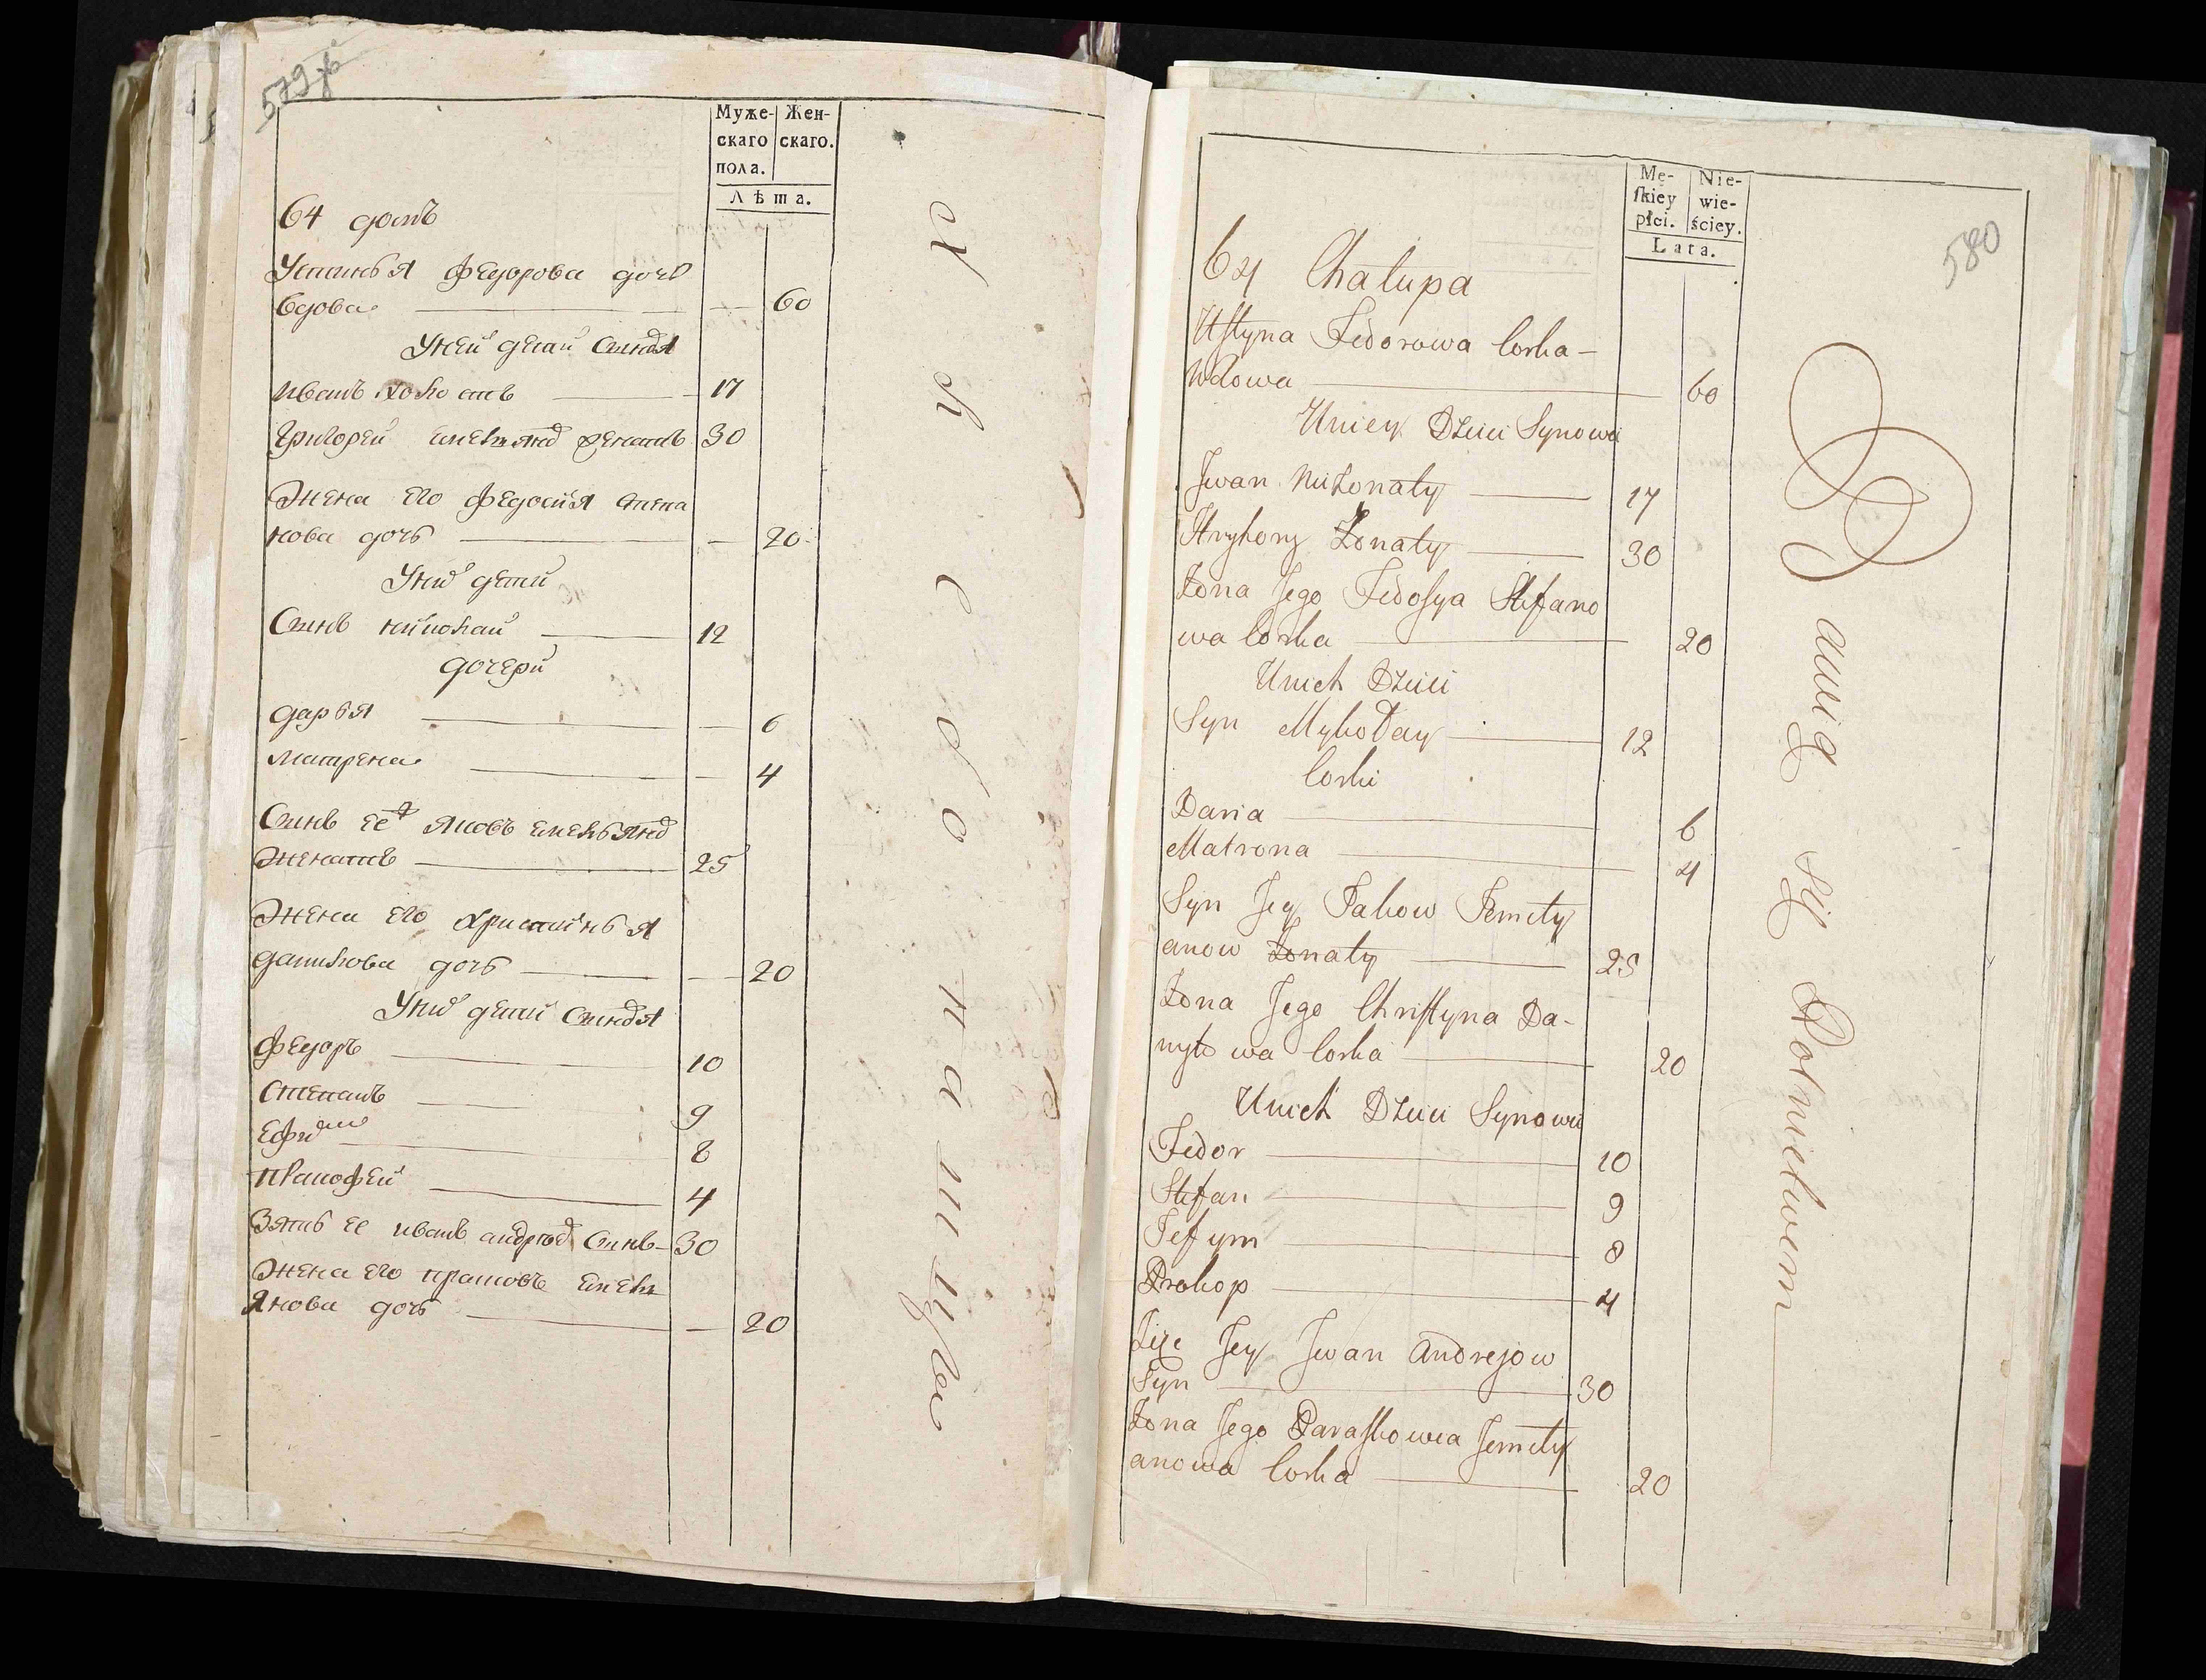 579
Муже- Жен-
скаго скаго.
пола.
Лѣта.
64 домъ
Устинья Федорова дочь
вдова — 60
У ней дети сыновья
Иванъ холостъ — 17
Григорей емельянов женатъ 30
Жена его Федосия степа
нова дочь — 20
У них дети
Сынъ николай — 12
дочери
дарья — 6
матрена — 4
Сынъ ее яковъ емельянов
женатъ — 25
Жена его христинья
данилова дочь — 20
У них дети сыновья
Федоръ — 10
Степанъ — 9
Ефим — 8
4
Зять ее иванъ андреев сынъ 30
Жена его емель
янова дочь — 20
580
Mę- Nie-
ſkiey wie-
płci. ściey.
Lata.
64 Chałupa
Uſtyna Fedorowa Corka —
Wdowa — 60
U niey Dzieci Synowie
Jwan Nieżonaty — 17
Hryhory Żonaty — 30
Żona Jego Fedoſya Stefano
wa Corka — 20
U nich Dzieci
Syn Mykołay — 12
Corki
Daria — 6
Matrona — 4
Syn Jey Jakow Jemely
anow Żonaty — 25
Żona Jego Chriſtyna Da-
nyło wa Corka — 20
U nich Dzieci Synowie
Fedor — 10
Stefan — 9
Jefym — 8
Prokop — 4
Jey Jwan Andrejow
Syn — 30
Żona Jego Paraſkowia Jemely
anowa Corka — 20
Bawią się Rolnictwem